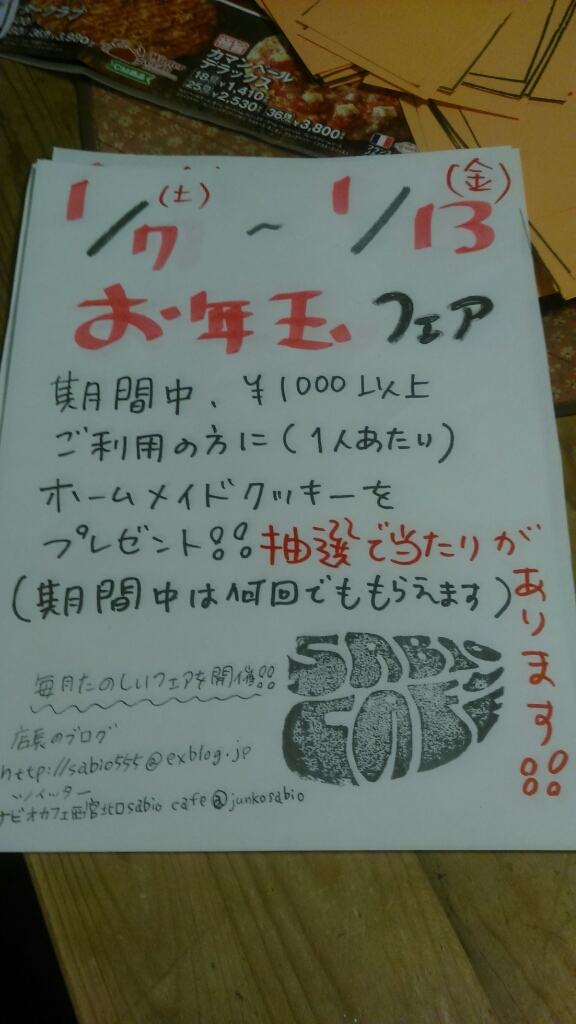 カマンベール
デラックス
18㎝¥1,410
25㎝¥2,530 36㎝¥3,800
1/7(土)～1/13(金)
お年玉フェア
期間中、¥1000以上
ご利用の方に(1人あたり)
ホームメイドクッキーを
プレゼント!! 抽選で当たりがあります!!
(期間中は何回でももらえます)
毎月たのしいフェアを開催!!
SABIO
CAFE
店長のブログ
http://sabio555@exblog.jp
ツイッター
サビオカフェ西宮北口sabio cafe @junkosabio